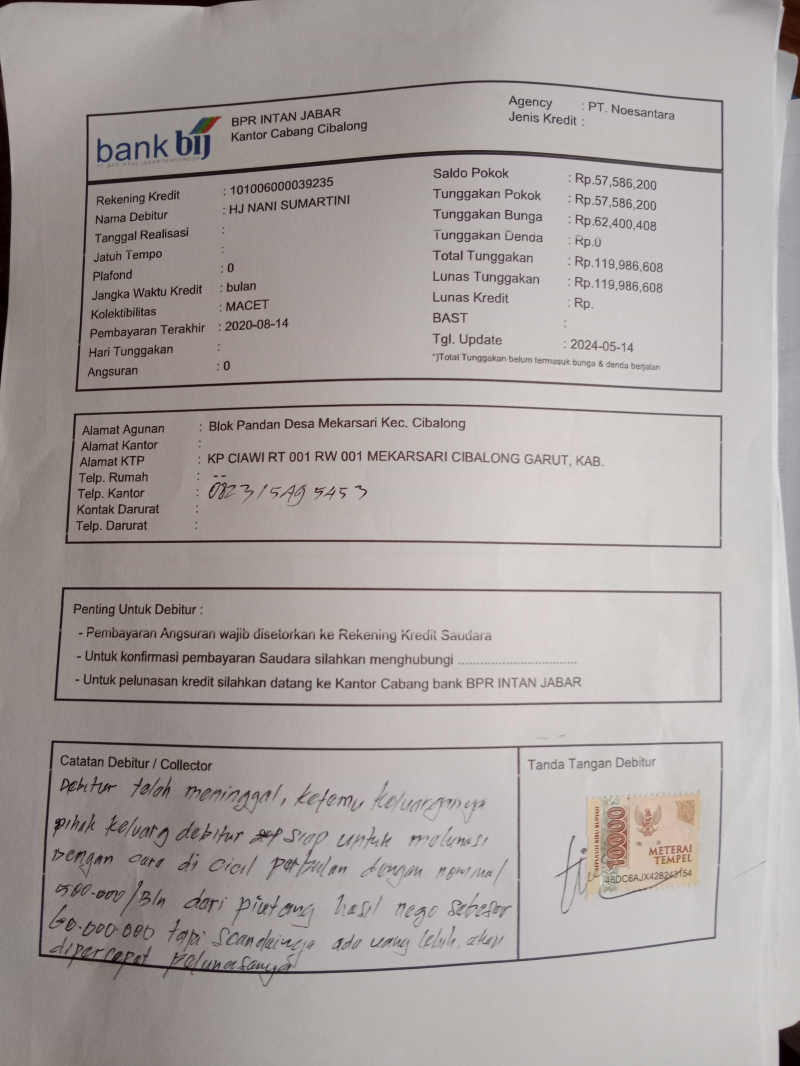 bank bij
BPR INTAN JABAR
Kantor Cabang Cibalong
Agency : PT. Noesantara
Jenis Kredit :
Rekening Kredit : 101006000039235
Nama Debitur : HJ NANI SUMARTINI
Tanggal Realisasi :
Jatuh Tempo :
Plafond : 0
Jangka Waktu Kredit : bulan
Kolektibilitas : MACET
Pembayaran Terakhir : 2020-08-14
Hari Tunggakan :
Angsuran : 0
Saldo Pokok : Rp.57,586,200
Tunggakan Pokok : Rp.57,586,200
Tunggakan Bunga : Rp.62,400,408
Tunggakan Denda : Rp.0
Total Tunggakan : Rp.119,986,608
Lunas Tunggakan : Rp.119,986,608
Lunas Kredit : Rp.
BAST :
Tgl. Update : 2024-05-14
*)Total Tunggakan belum termasuk bunga & denda berjalan
Alamat Agunan : Blok Pandan Desa Mekarsari Kec. Cibalong
Alamat Kantor :
Alamat KTP : KP CIAWI RT 001 RW 001 MEKARSARI CIBALONG GARUT, KAB.
Telp. Rumah : --
Telp. Kantor :
Kontak Darurat :
Telp. Darurat :
Penting Untuk Debitur :
- Pembayaran Angsuran wajib disetorkan ke Rekening Kredit Saudara
- Untuk konfirmasi pembayaran Saudara silahkan menghubungi ................................
- Untuk pelunasan kredit silahkan datang ke Kantor Cabang bank BPR INTAN JABAR
Catatan Debitur / Collector
Debitur telah meninggal, ketemu keluarganya
pihak keluarg debitur siap untuk melunasi
Dengan cara di cicil perbulan dengan nominal
500.000/Bln dari piutang hasil nego sebesar
60.000.000 tapi seandainya ada uang lebih, akan
dipercepat pelunasanya
Tanda Tangan Debitur
10000
METERAI
TEMPEL